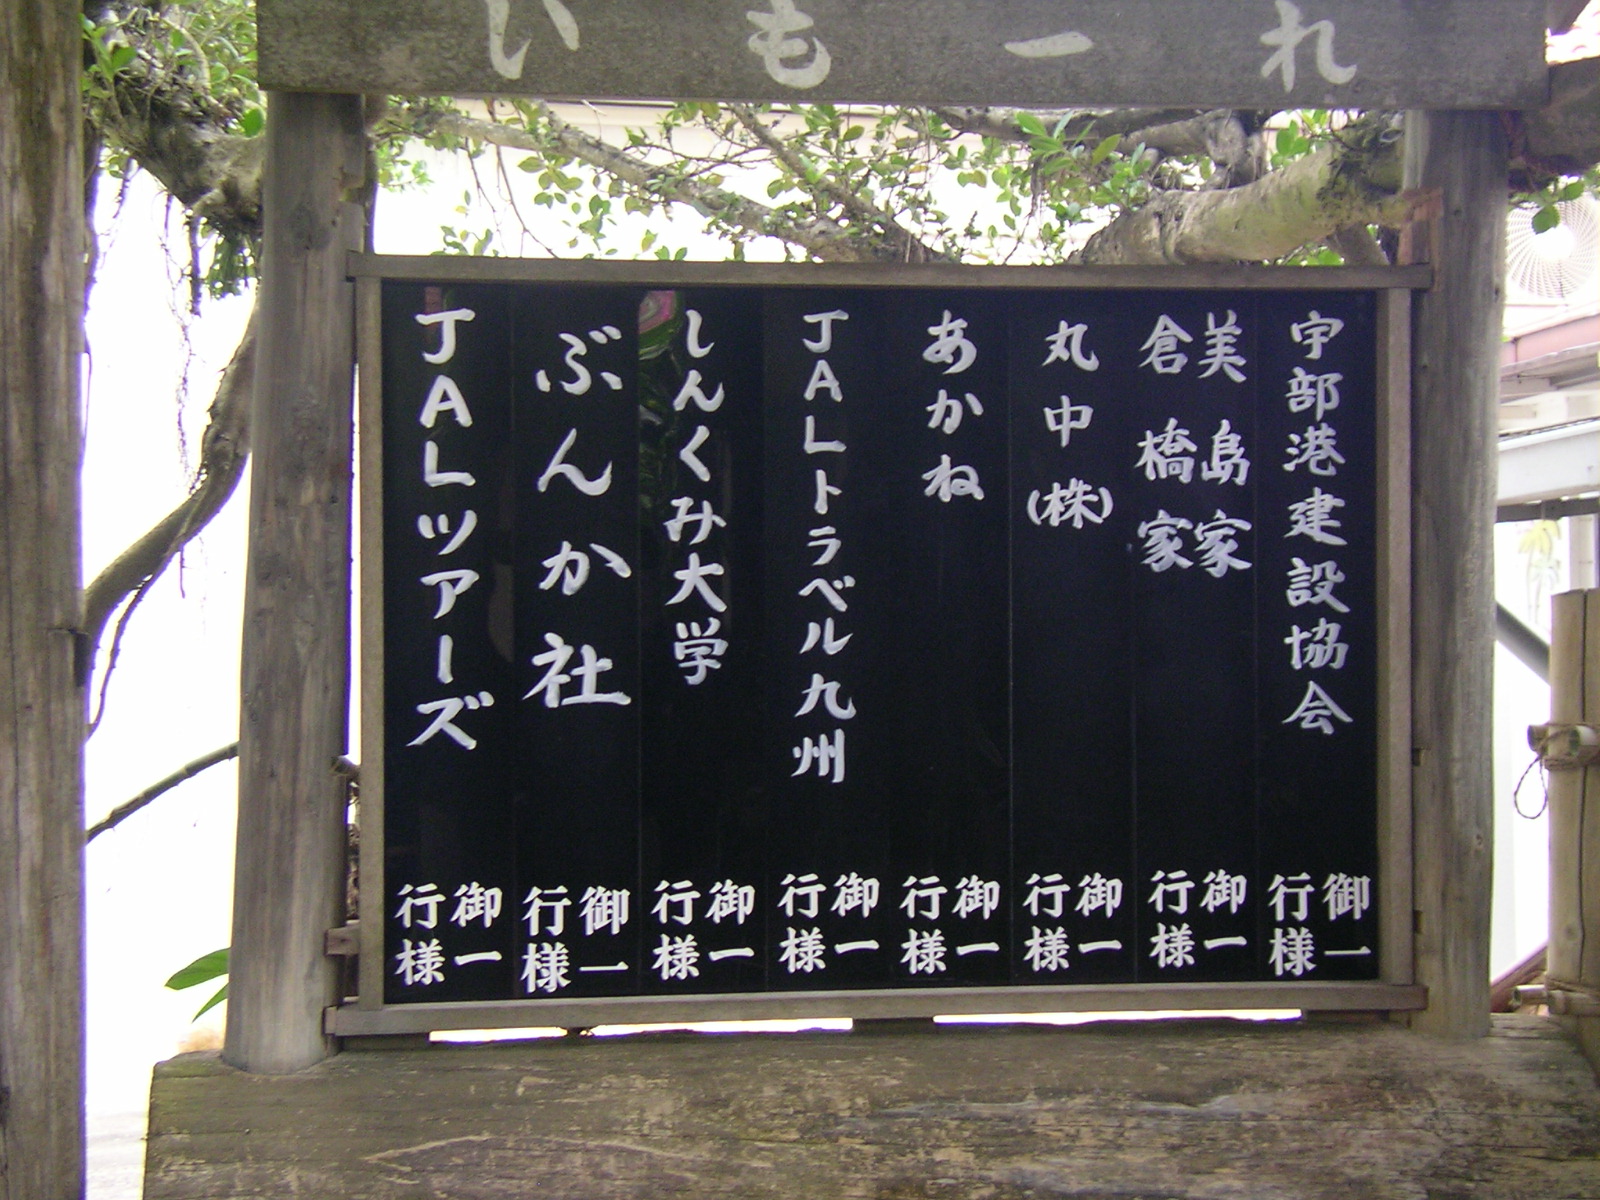 れーもい
宇部港建設協会 御一行様
美島家
倉橋家 御一行様
丸中(株) 御一行様
あかね 御一行様
JALトラベル九州 御一行様
しんくみ大学 御一行様
ぶんか社 御一行様
JALツアーズ 御一行様